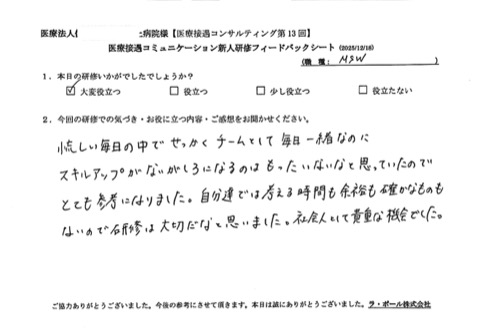 医療法人 病院様【医療接遇コンサルティング第13回】
医療接遇コミュニケーション新人研修フィードバックシート (2025/12/18)
(職 種: MSW )
1．本日の研修いかがでしたでしょうか?
☑ 大変役立つ □ 役立つ □ 少し役立つ □ 役立たない
2．今回の研修での気づき・お役に立つ内容・ご感想をお聞かせください。
忙しい毎日の中でせっかくチームとして毎日一緒なのに
スキルアップがないがしろになるのはもったいないなと思っていたので
とても参考になりました。自分達では考える時間も余裕も確かなものも
ないので研修は大切だなと思いました。社会人として貴重な機会でした。
ご協力ありがとうございました。今後の参考にさせて頂きます。本日は誠にありがとうございました。ラ・ポール株式会社